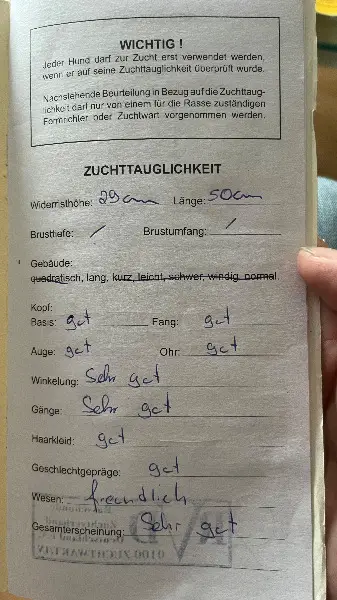 WICHTIG !
Jeder Hund darf zur Zucht erst verwendet werden,
wenn er auf seine Zuchttauglichkeit überprüft wurde.
Nachstehende Beurteilung in Bezug auf die Zuchttaug-
lichkeit darf nur von einem für die Rasse zuständigen
Formrichter oder Zuchtwart vorgenommen werden.
ZUCHTTAUGLICHKEIT
Widerristhöhe: 29cm Länge: 50cm
Brusttiefe: / Brustumfang: /
Gebäude:
quadratisch, lang, kurz, leicht, schwer, windig, normal
Kopf:
Basis: gut Fang: gut
Auge: gut Ohr: gut
Winkelung: Sehr gut
Gänge: Sehr gut
Haarkleid: gut
Geschlechtgepräge: gut
Wesen: freundlich
Gesamterscheinung: Sehr gut